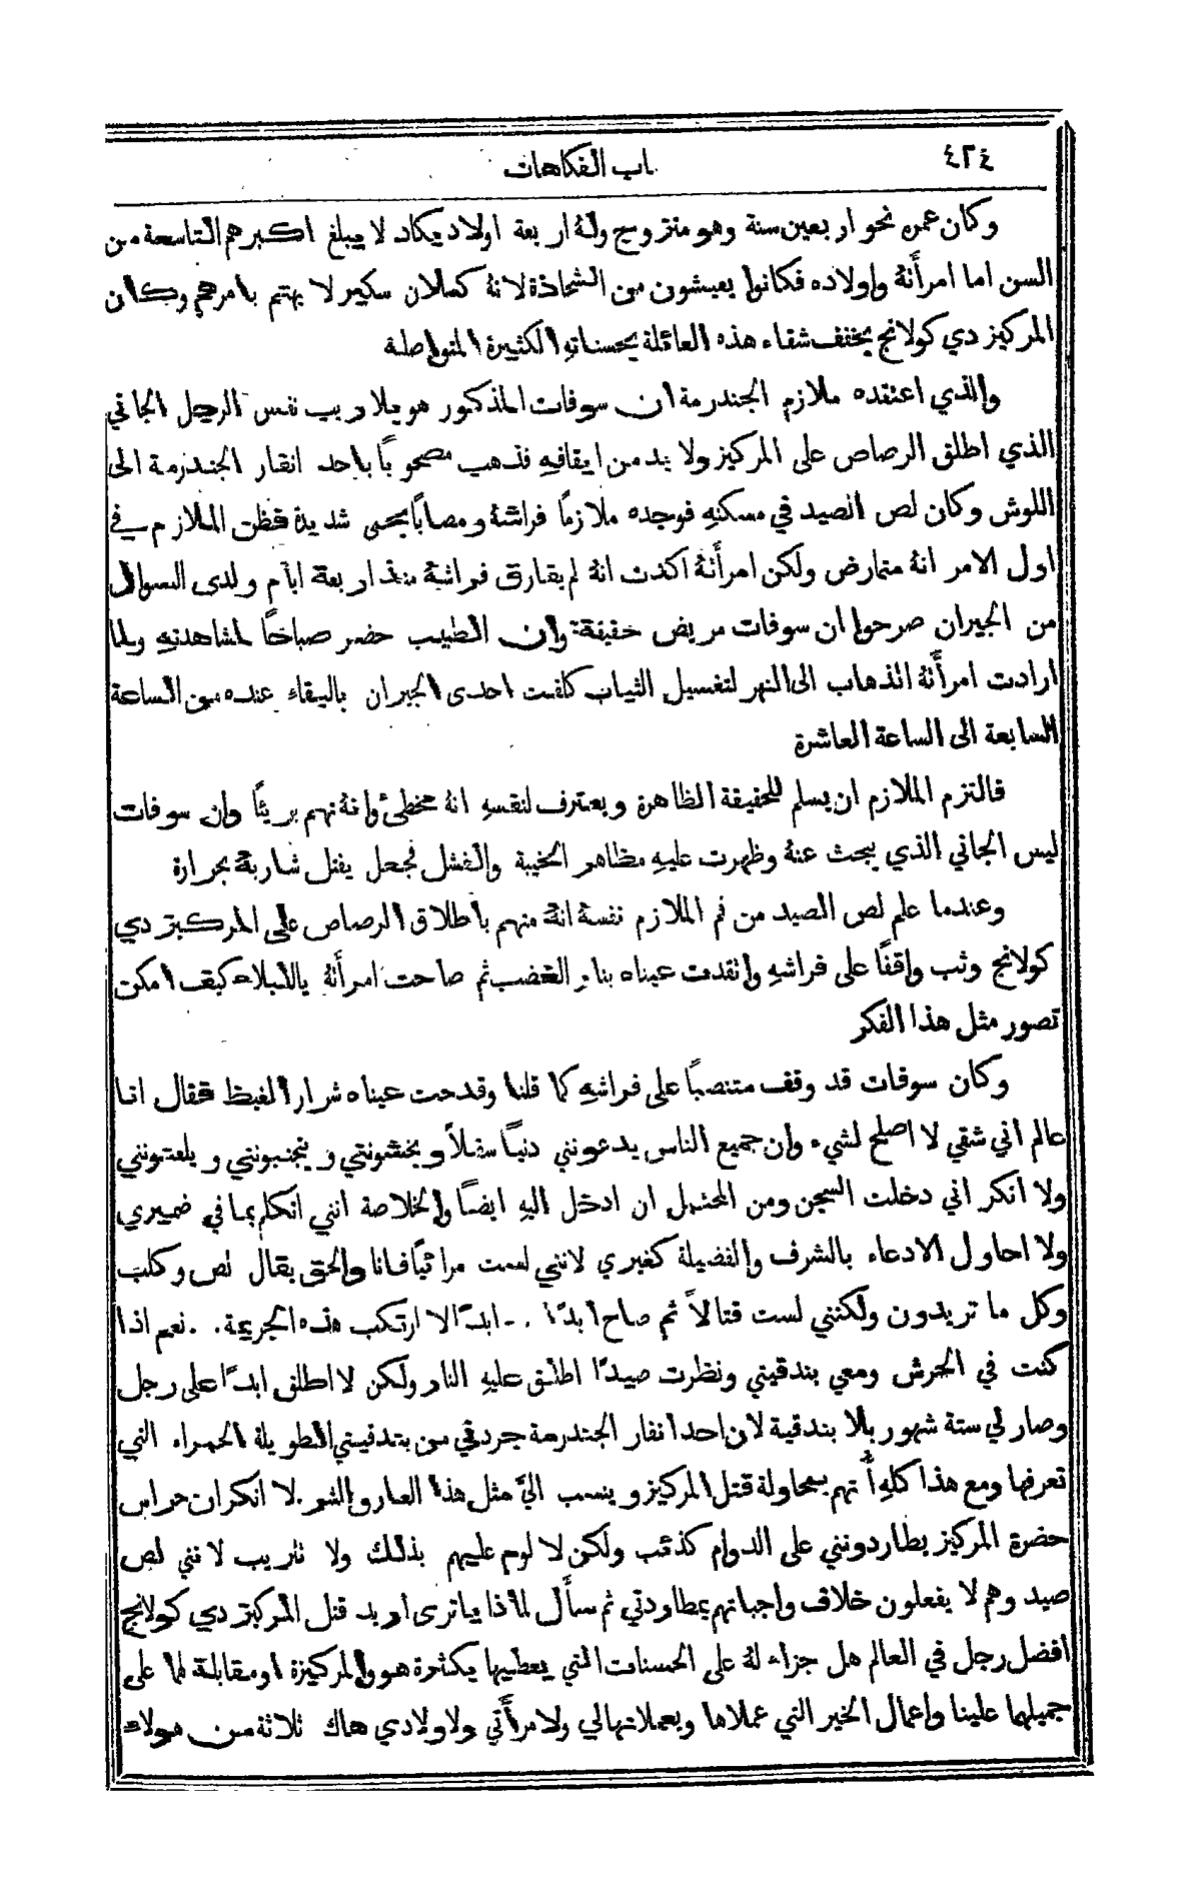 ٤٢٤
باب الفكاهات
وكان عمره نحو اربعين سنة وهو متزوج وله اربعة اولاد يكاد لا يبلغ اكبرهم التاسعة من
السن اما امرأَتهُ واولاده فكانوا يعيشون من الشحاذة لانهُ كسلان سكير لا يهتم بامرهم وكان
المركيز دي كولانج يخفف شقاء هذه العائلة بحسناتهِ الكثيرة المتواصلة
والذي اعتقده ملازم الجندرمة ان سوفات المذكور هو بلا ريب نفس الرجل الجاني
الذي اطلق الرصاص على المركيز ولا بد من ايقافهِ فذهب مصحوبًا باحد انفار الجندرمة الى
اللوش وكان لص الصيد في مسكنهِ فوجده ملازمًا فراشهُ ومصابًا بحمى شديدة فظن الملازم في
اول الامر انهُ متمارض ولكن امرأَتهُ اكدت انهُ لم يفارق فراشهُ منذ اربعة ايام ولدى السوال
من الجيران صرحوا ان سوفات مريض حقيقة وان الطبيب حضر صباحًا لمشاهدتهِ ولما
ارادت امرأَتهُ الذهاب الى النهر لتغسيل الثياب كلفت احدى الجيران بالبقاء عنده من الساعة
السابعة الى الساعة العاشرة
فالتزم الملازم ان يسلم للحقيقة الظاهرة ويعترف لنفسهِ انهُ مخطئ وانهُ تهم بريئًا وان سوفات
ليس الجاني الذي يبحث عنهُ وظهرت عليهِ مظاهر الخيبة والفشل فجعل يفتل شاربهُ بحرارة
وعندما علم لص الصيد من فم الملازم نفسهُ انهُ متهم باطلاق الرصاص على المركيز دي
كولانج وثب واقفًا على فراشهِ واتقدت عيناه بنار الغضب ثم صاحت امرأَتهُ ياللبلاء كيف امكن
تصور مثل هذا الفكر
وكان سوفات قد وقف منتصبًا على فراشهِ كما قلنا وقدحت عيناه شرار الغيظ فقال انا
عالم اني شقي لا اصلح لشيء وان جميع الناس يدعونني دنيًا سفلاً ويخشونني ويتجنبونني ويلعنونني
ولا انكر اني دخلت السجن ومن المحتمل ان ادخل اليهِ ايضًا والخلاصة انني اتكلم بما في ضميري
ولا احاول الادعاء بالشرف والفضيلة كغيري لانني لست مرائيًا فانا والحق يقال لص وكلب
وكل ما تريدون ولكنني لست قتالاً ثم صاح ابدًا . .. ابدًا لا ارتكب هذه الجريمة . . نعم اذا
كنت في الحرش ومعي بندقيتي ونظرت صيدًا اطلق عليهِ النار ولكن لا اطلق ابدًا على رجل
وصار لي ستة شهور بلا بندقية لان احد انفار الجندرمة جردني من بندقيتي الطويلة الحمراء التي
تعرفها ومع هذا كلهِ أُتهم بمحاولة قتل المركيز وينسب اليَّ مثل هذا العار والشر . لا انكر ان حراس
حضرة المركيز يطاردونني على الدوام كذئب ولكن لا لوم عليهم بذلك ولا تثريب لانني لص
صيد وهم لا يفعلون خلاف واجباتهم بمطاردتي ثم سأَل لماذا ياترى اريد قتل المركيز دي كولانج
افضل رجل في العالم هل جزاء لهُ على الحسنات التي يعطيها بكثرة هو والمركيزة او مقابلة لما على
جميلهما علينا واعمال الخير التي عملاها ويعملانها لي ولامرأَتي ولاولادي هاك ثلاثة من هولاء